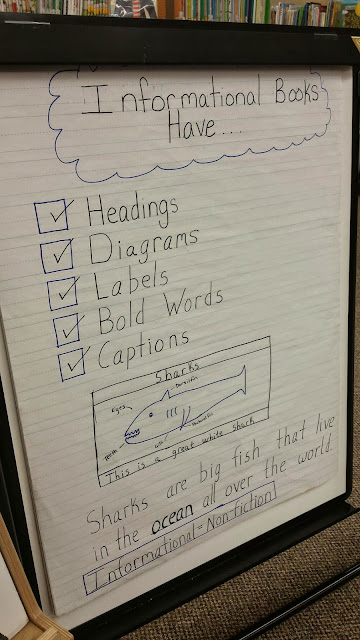 Informational Books
Have....
Headings
Diagrams
Labels
Bold Words
Captions
Sharks
Eyes
teeth
This is a great white shark
Sharks are big fish that live
in the ocean all over the world.
Informational = Non-fiction